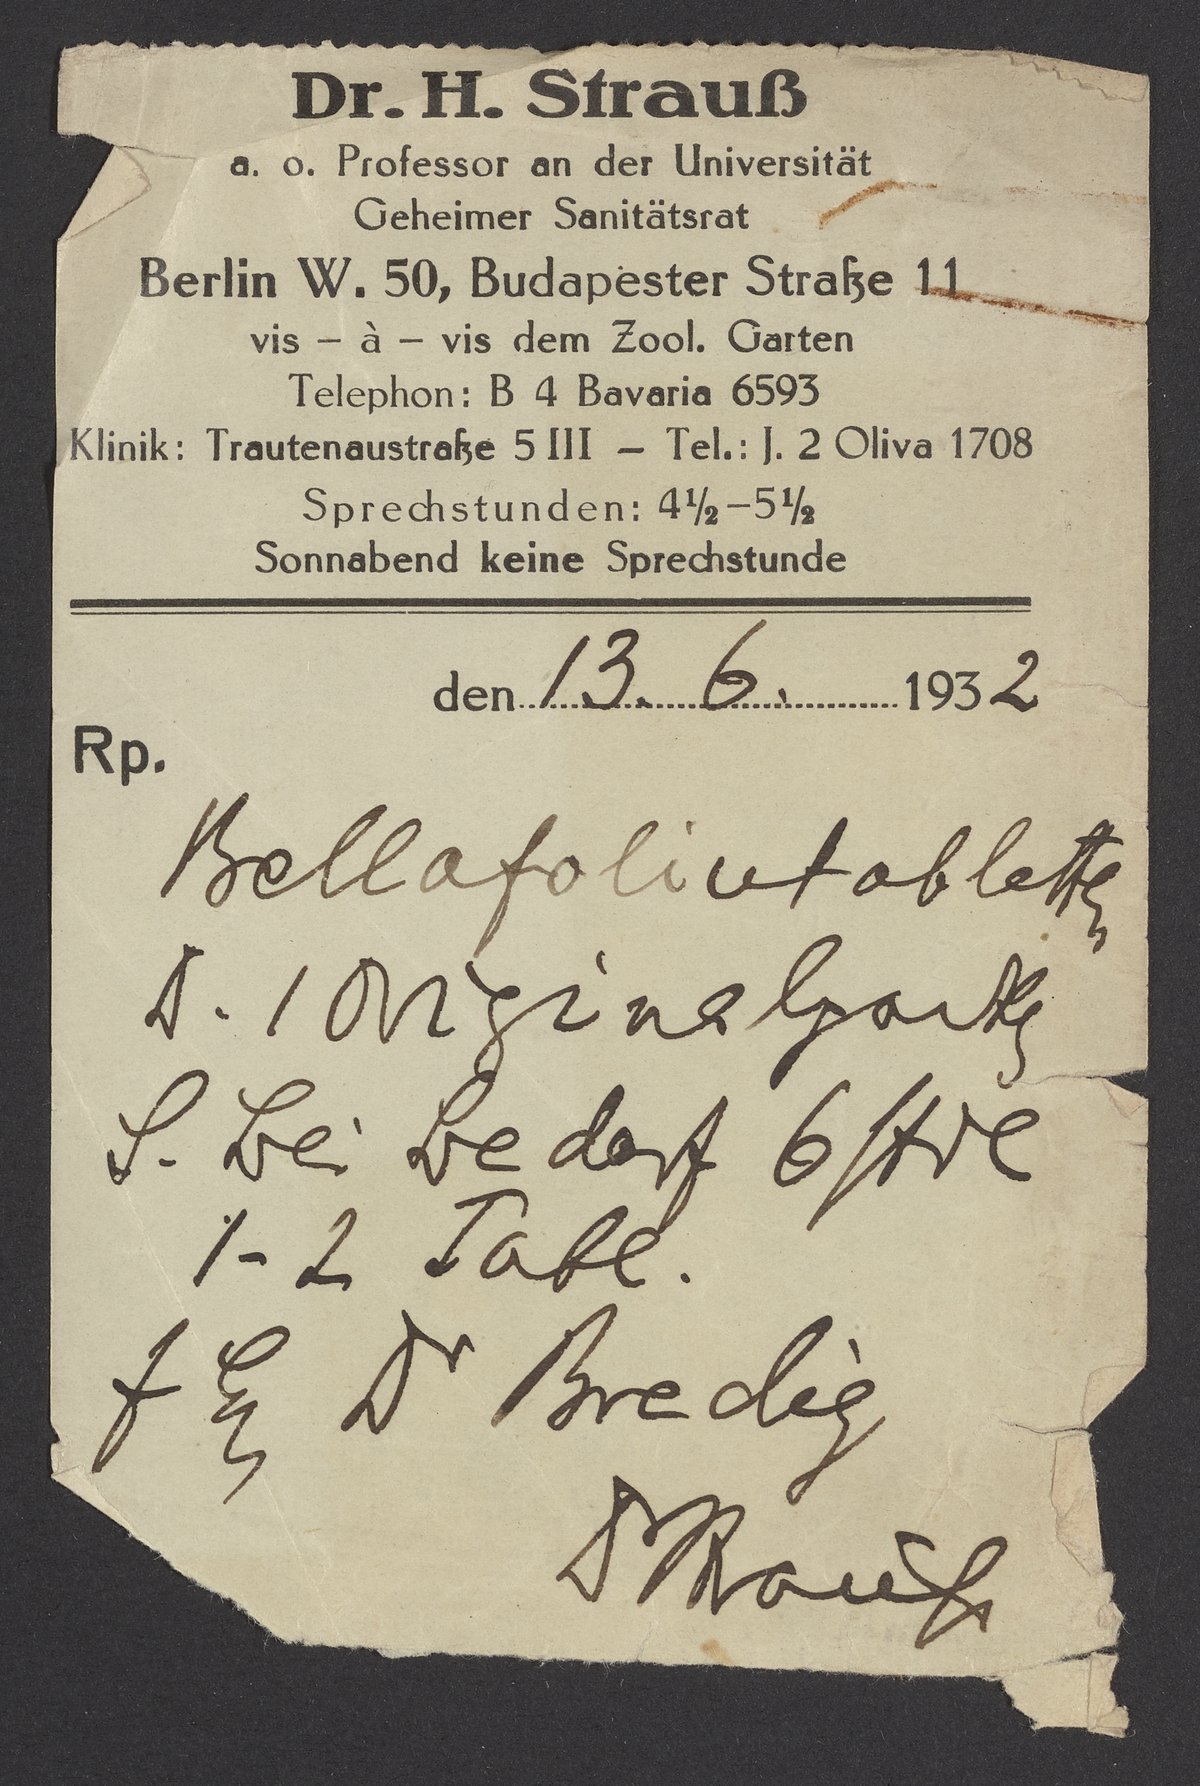 Dr. H. Strauß
a. o. Professor an der Universität
Geheimer Sanitätsrat
Berlin W. 50, Budapester Straße 11
vis – à – vis dem Zool. Garten
Telephon: B 4 Bavaria 6593
Klinik: Trautenaustraße 5 III – Tel.: J. 2 Oliva 1708
Sprechstunden: 4½–5½
Sonnabend keine Sprechstunde
den 13. 6. 1932
Rp.
Bellafolintabletten
D. 1 Originalpackg
S. bei Bedarf
1-2 Tabl.
f Dr Bredig
Dr Strauß